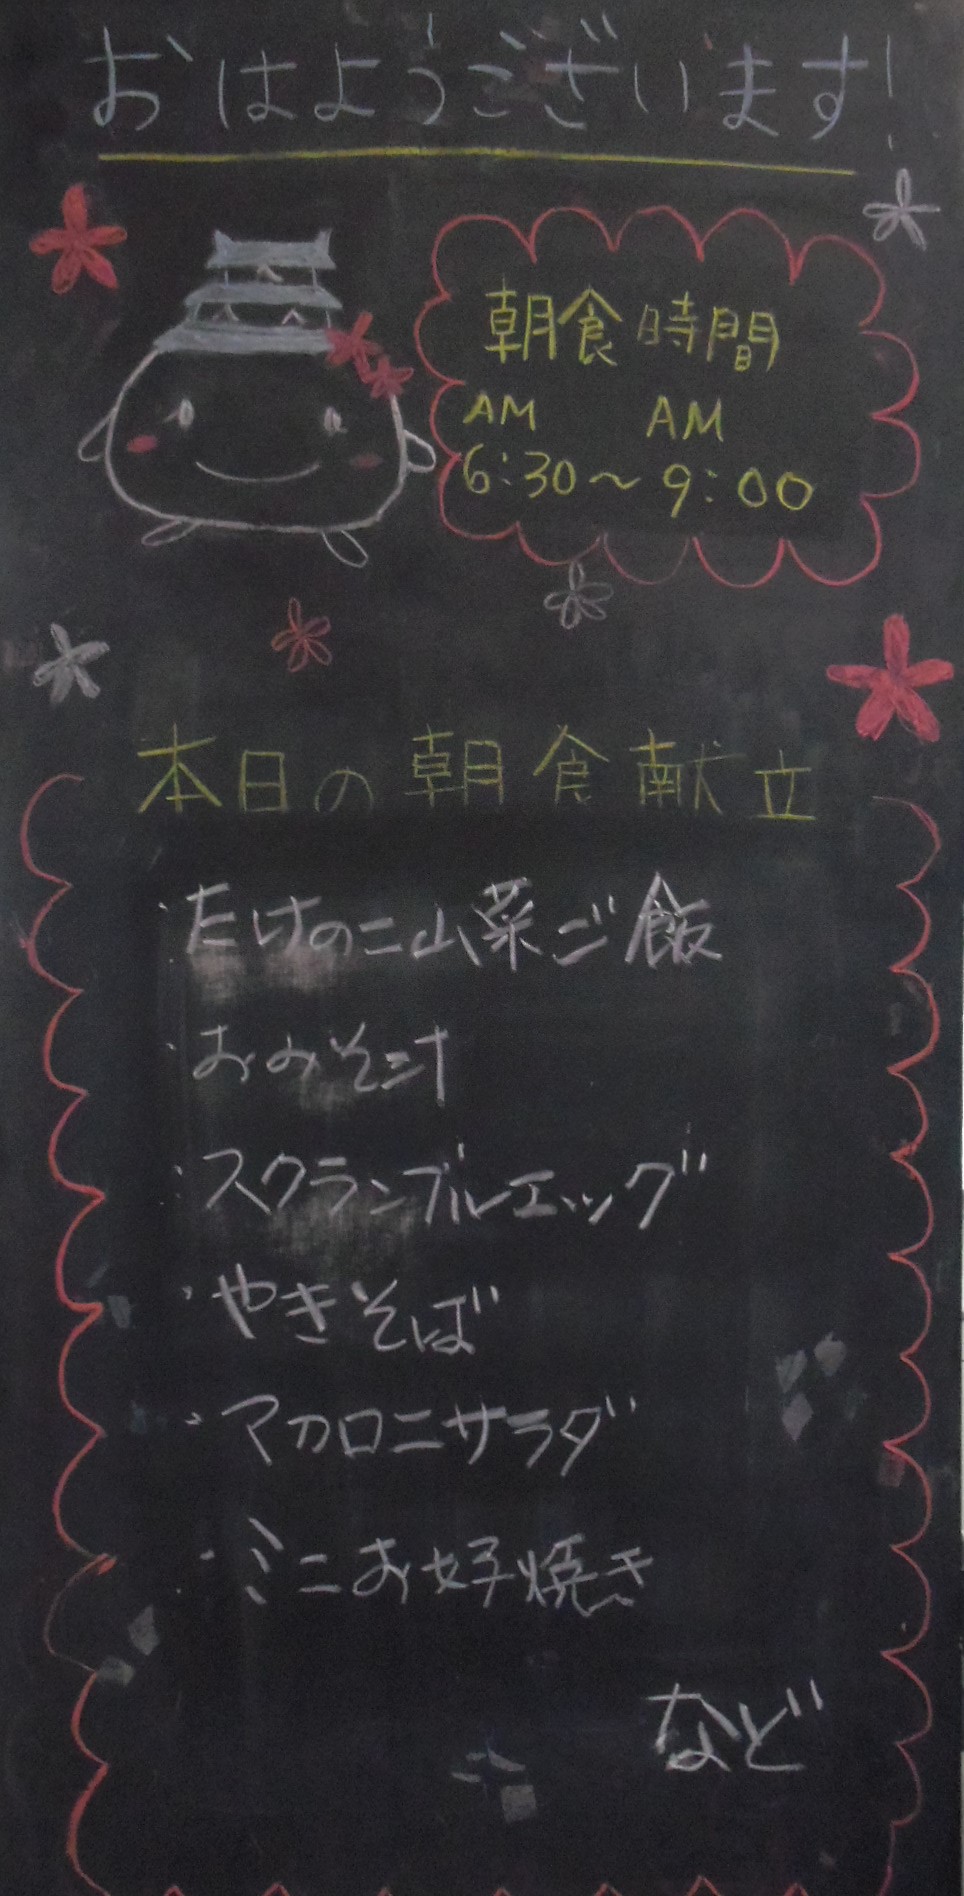 おはようございます!
朝食時間
AM AM
6:30～9:00
本日の朝食献立
・たけのこ山菜ご飯
・おみそ汁
・スクランブルエッグ
・やきそば
・マカロニサラダ
・ミニお好焼き
など